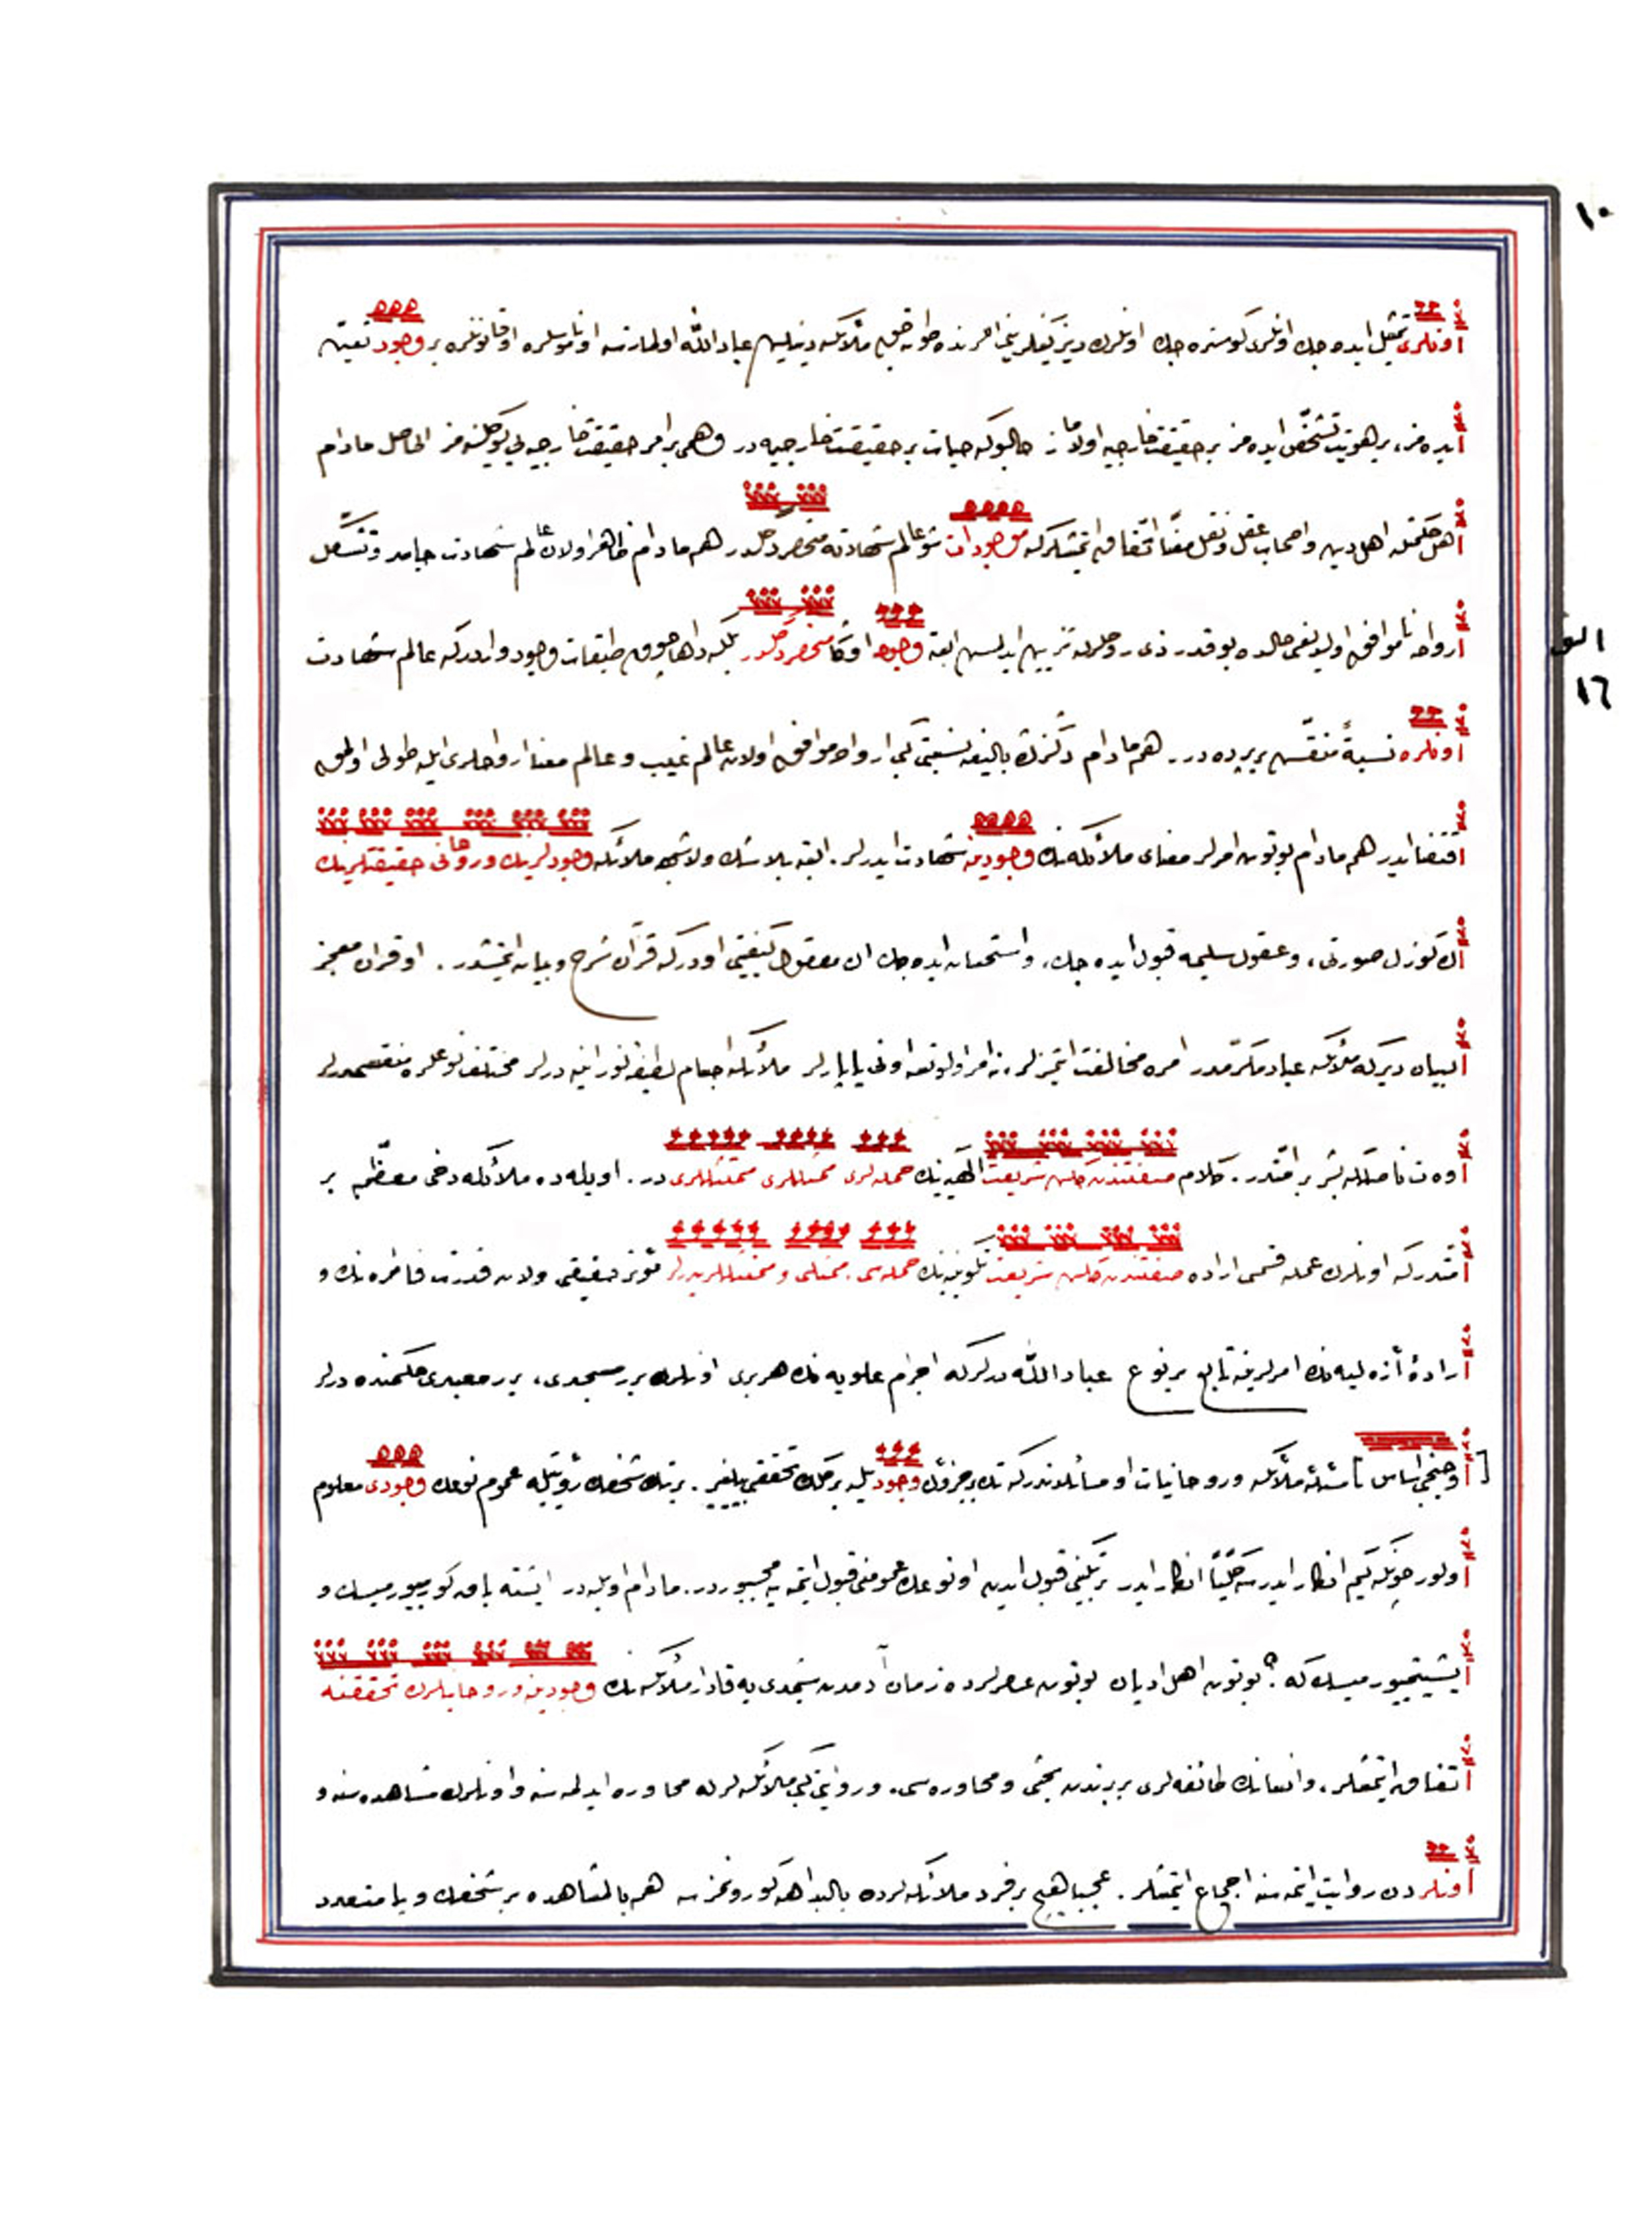 ١٠
اونلرى تمثيل ايده جك اونلرى كوستره جك اونلرك ديزكينلرينى اللرنده طوته جق ملائكه دينيلن عباد اللّه اولمازسه او ناموسلره او قانونلره بر وجود تعين
ايده مز، بر هويت تشخص ايده مز بر حقيقت خارجيه اولاماز حالبوكه حيات بر حقيقت خارجيه در وهمى بر امر حقيقت خارجيه يى يوكلنه مز الحاصل مادام
اهل حكمتله اهل دين واصحاب عقل ونقل معنًا اتفاق ايتمشلركه موجودات شو عالم شهادته منحصر دكلدر هم مادام ظاهر اولان عالم شهادت جامد وتشكل
ارواحه ناموافق اولديغى حالده بو قدر ذى روحلرله تزيين ايدلمش البته وجود اوكا منحصر دكلدر بلكه داها چوق طبقات وجود واردركه عالم شهادت
اونلره نسبةً منقش بر پرده در. هم مادام دكزك باليغه نسبتى كبى ارواحه موافق اولان عالم غيب و عالم معنا ارواحلرى ايله طولى اولمق
اقتضا ايدر هم مادام بوتون امرلر معناى ملائكه نك وجودينه شهادت ايدرلر. البته بلا شك ولا شبهه ملائكه وجودلرينك وروحانى حقيقتلرينك
اڭ كوزل صورتى، وعقول سليمه قبول ايده جك، واستحسان ايده جك اڭ معقول كيفيتى اودركه قرآن شرح وبيان ايتمشدر. او قرآن معجز
البيان ديركه ملائكه عباد مكرمدر امره مخالفت ايتمزلر، نه امر اولونسه اونى ياپارلر ملائكه اجسام لطيفه نورانيه درلر مختلف نوعلره منقسمدرلر
اوت ناصلكه بشر بر امتدر. كلام صفتندن كلن شريعت الٰهيه نك حمله لرى ممثللرى متمثللرى در. اويله ده ملائكه دخى معظم بر
امتدركه اونلرك عمله قسمى اراده صفتندن كلن شريعت تكوينيه نك حمله سى، ممثلى و متمثللريدرلر مؤثر حقيقى ولان قدرت فاطره نك و
ارادۀ ازليه نك امرلرينه تابع بر نوع عباد اللّه درلركه اجرام علويه نك هر برى اونلرك برر مسجدى، برر معبدى حكمنده درلر
[اوچنجى اساس] مسئلۀ ملائكه وروحانيات او مسائلدندركه تك بر جزؤك وجوديله بر كلك تحققى بيلنير. بر تك شخصك رؤيتيله عموم نوعك وجودى معلوم
اولور چونكه كيم انكار ايدرسه كليًا انكار ايدر بر تكينى قبول ايدن او نوعك عمومنى قبول ايتمه يه مجبوردر. مادام اويله در ايشته باق كورمييورميسك و
ايشيتمييورميسك كه؟ بوتون اهل اديان بوتون عصرلرده زمان آدمدن شيمدى يه قادار ملائكه نك وجودينه وروحانيلرك تحققنه
اتفاق ايتمشلر، وانسانك طائفه لرى بربرندن بحثى ومحاوره سى. وروايتى كبى ملائكه لرله محاوره ايدلمه سنه واونلرك مشاهده سنه و
اونلردن روايت ايتمه سنه اجماع ايتمشلر. عجبا هيچ بر فرد ملائكه لردن بالبداهه كورونمزسه هم بالمشاهده بر شخصك ويا متعدد
١٦